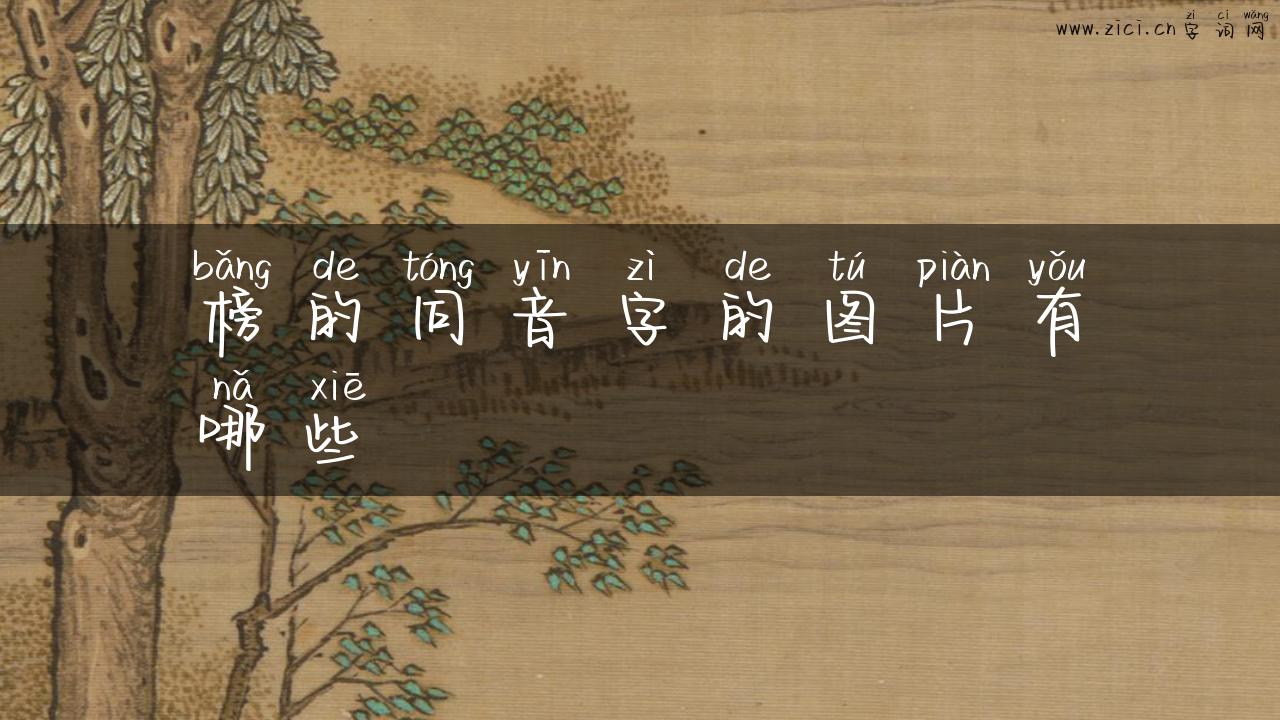 zì cí wǎng
www.zici.cn 字词网
bǎng de tóng yīn zì de tú piàn yǒu
榜的同音字的图片有
nǎ xiē
哪些